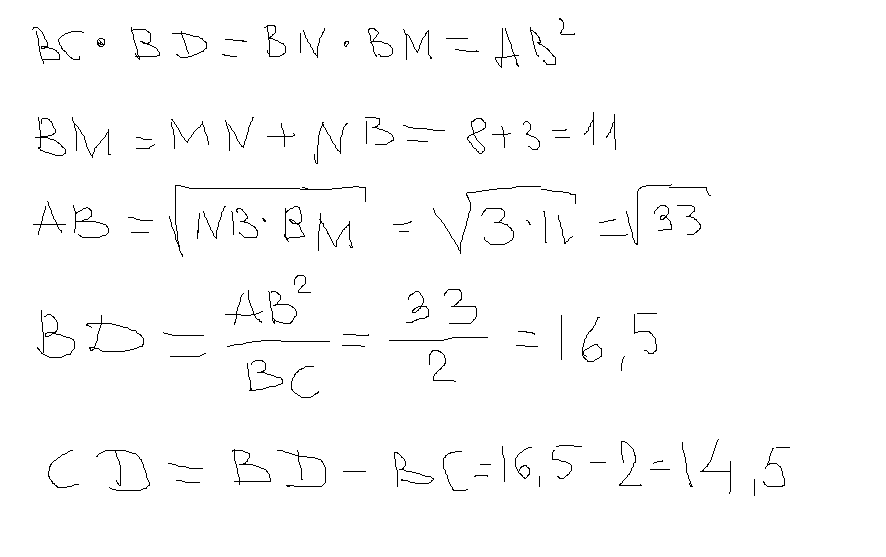 BC · BD = BN · BM = AB²
BM = MN + NB = 8+3=11
AB = √(NB·BM) = √(3·11) = √33
BD = AB²/BC = 33/2 = 16,5
CD = BD - BC=16,5-2=14,5